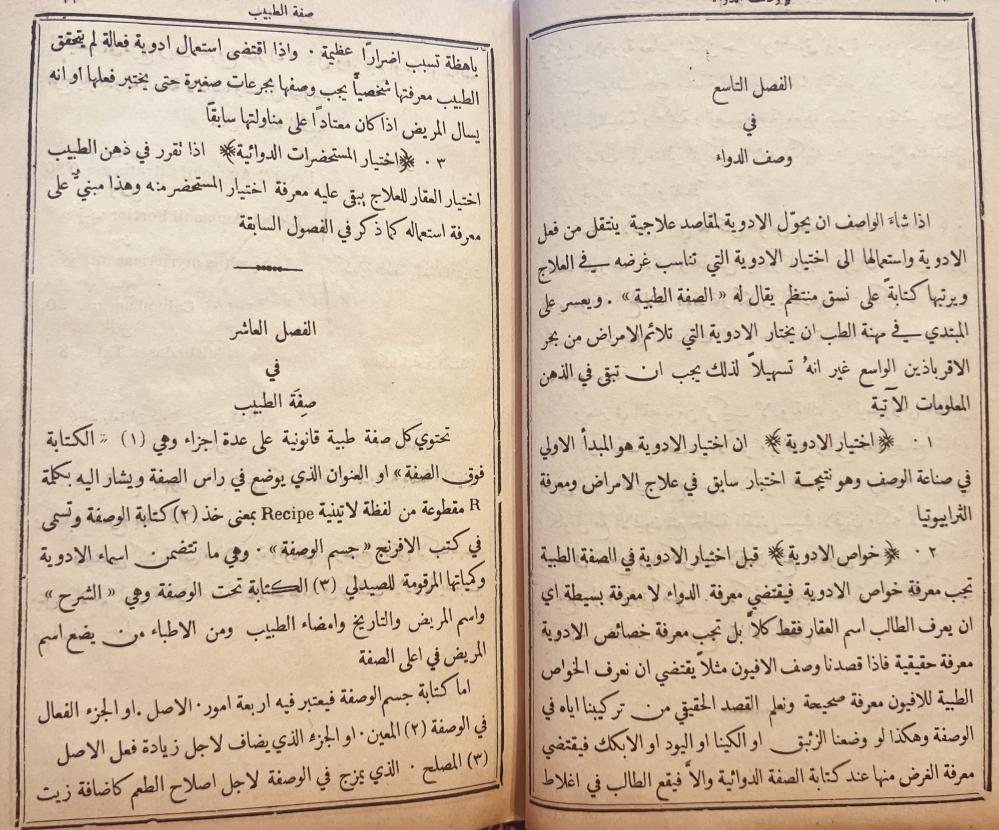 الفصل التاسع
في
وصف الدواء
اذا شاءَ الواصف ان يحوّل الادوية لمقاصد علاجية ينتقل من فعل
الادوية واستعمالها الى اختيار الادوية التي تناسب غرضه في العلاج
ويرتبها كتابةً على نسق منتظم يقال له « الصفة الطبية » . ويعسر على
المبتدي في مهنة الطب ان يختار الادوية التي تلائم الامراض من بحر
الاقرباذين الواسع غير انهُ تسهيلاً لذلك يجب ان تبقى في الذهن
المعلومات الآتية
١ . ﴿اختيار الادوية﴾ ان اختيار الادوية هو المبدأ الاولي
في صناعة الوصف وهو نتيجة اختبار سابق في علاج الامراض ومعرفة
الثرابيوتيا
٢ . ﴿خواص الادوية﴾ قبل اختيار الادوية في الصفة الطبية
تجب معرفة خواص الادوية فيقتضي معرفة الدواء لا معرفة بسيطة اي
ان يعرف الطالب اسم العقار فقط كلاَّ بل تجب معرفة خصائص الادوية
معرفة حقيقية فاذا قصدنا وصف الافيون مثلاً يقتضي ان نعرف الخواص
الطبية للافيون معرفة صحيحة ونعلم القصد الحقيقي من تركيبنا اياه في
الوصفة وهكذا لو وضعنا الزئبق او الكينا او اليود او الابكك فيقتضي
معرفة الغرض منها عند كتابة الصفة الدوائية والاَّ فيقع الطالب في اغلاط
صفة الطبيب
باهظة تسبب اضرارًا عظيمة . واذا اقتضى استعمال ادوية فعالة لم يتحقق
الطبيب معرفتها شخصيًّا يجب وصفها بجرعات صغيرة حتى يختبر فعلها او انه
يسال المريض اذا كان معتادًا على مناولتها سابقًا
٣ . ﴿اختيار المستحضرات الدوائية﴾ اذا تقرر في ذهن الطبيب
اختيار العقار للعلاج يبقى عليه معرفة اختيار المستحضر منه وهذا مبنيٌّ على
معرفة استعماله كما ذكر في الفصول السابقة
الفصل العاشر
في
صِفَة الطبيب
تحتوي كل صفة طبية قانونية على عدة اجزاء وهي (١) « الكتابة
فوق الصفة » او العنوان الذي يوضع في راس الصفة ويشار اليه بكلمة
R مقطوعة من لفظة لاتينية Recipe بمعنى خذ (٢) كتابة الوصفة وتسمى
في كتب الافرنج « جسم الوصفة » . وهي ما تتضمن اسماء الادوية
وكمياتها المرقومة للصيدلي (٣) الكتابة تحت الوصفة وهي « الشرح »
واسم المريض والتاريخ وامضاء الطبيب ومن الاطباء من يضع اسم
المريض في اعلى الصفة
اما كتابة جسم الوصفة فيعتبر فيه اربعة امور . الاصل . او الجزء الفعال
في الوصفة (٢) المعين . او الجزء الذي يضاف لاجل زيادة فعل الاصل
(٣) المصلح . الذي يمزج في الوصفة لاجل اصلاح الطعم كاضافة زيت